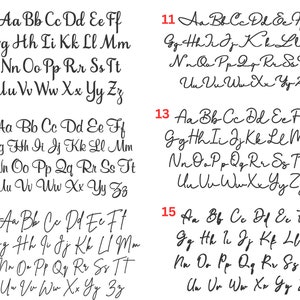 Aa Bb Cc Dd Ee Ff
Gg Hh Ii Kk Ll Mm
Nn Oo Pp Rr Ss Tt
Uu Vv Ww Xx Yy Zz
11
Aa Bb Cc Dd Ee Ff
Gg Hh Ii Jj Kk Ll Mm
Nn Oo Pp Qq Rr Ss Tt
Uu Vv Ww Xx Yy Zz
Aa Bb Cc Dd Ee Ff
Gg Hh Ii Jj Kk Ll Mm
Nn Oo Pp Qq Rr Ss Tt
Uu Vv Ww Xx Yy Zz
13
Aa Bb Cc Dd Ee Ff
Gg Hh Ii Jj Kk Ll Mm
Nn Oo Pp Qq Rr Ss Tt
Uu Vv Ww Xx Yy Zz
Aa Bb Cc Dd Ee Ff
Gg Hh Ii Jj Kk Ll Mm
Nn Oo Pp Qq Rr Ss Tt
Uu Vv Ww Xx Yy Zz
15
Aa Bb Cc Dd Ee Ff
Gg Hh Ii Jj Kk Ll
Nn Oo Pp Qq Rr Ss
Uu Vv Ww Xx Yy